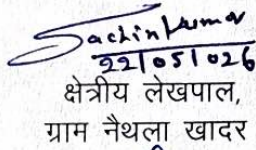 Sachin Kumar
22/05/026
क्षेत्रीय लेखपाल,
ग्राम नैथला खादर